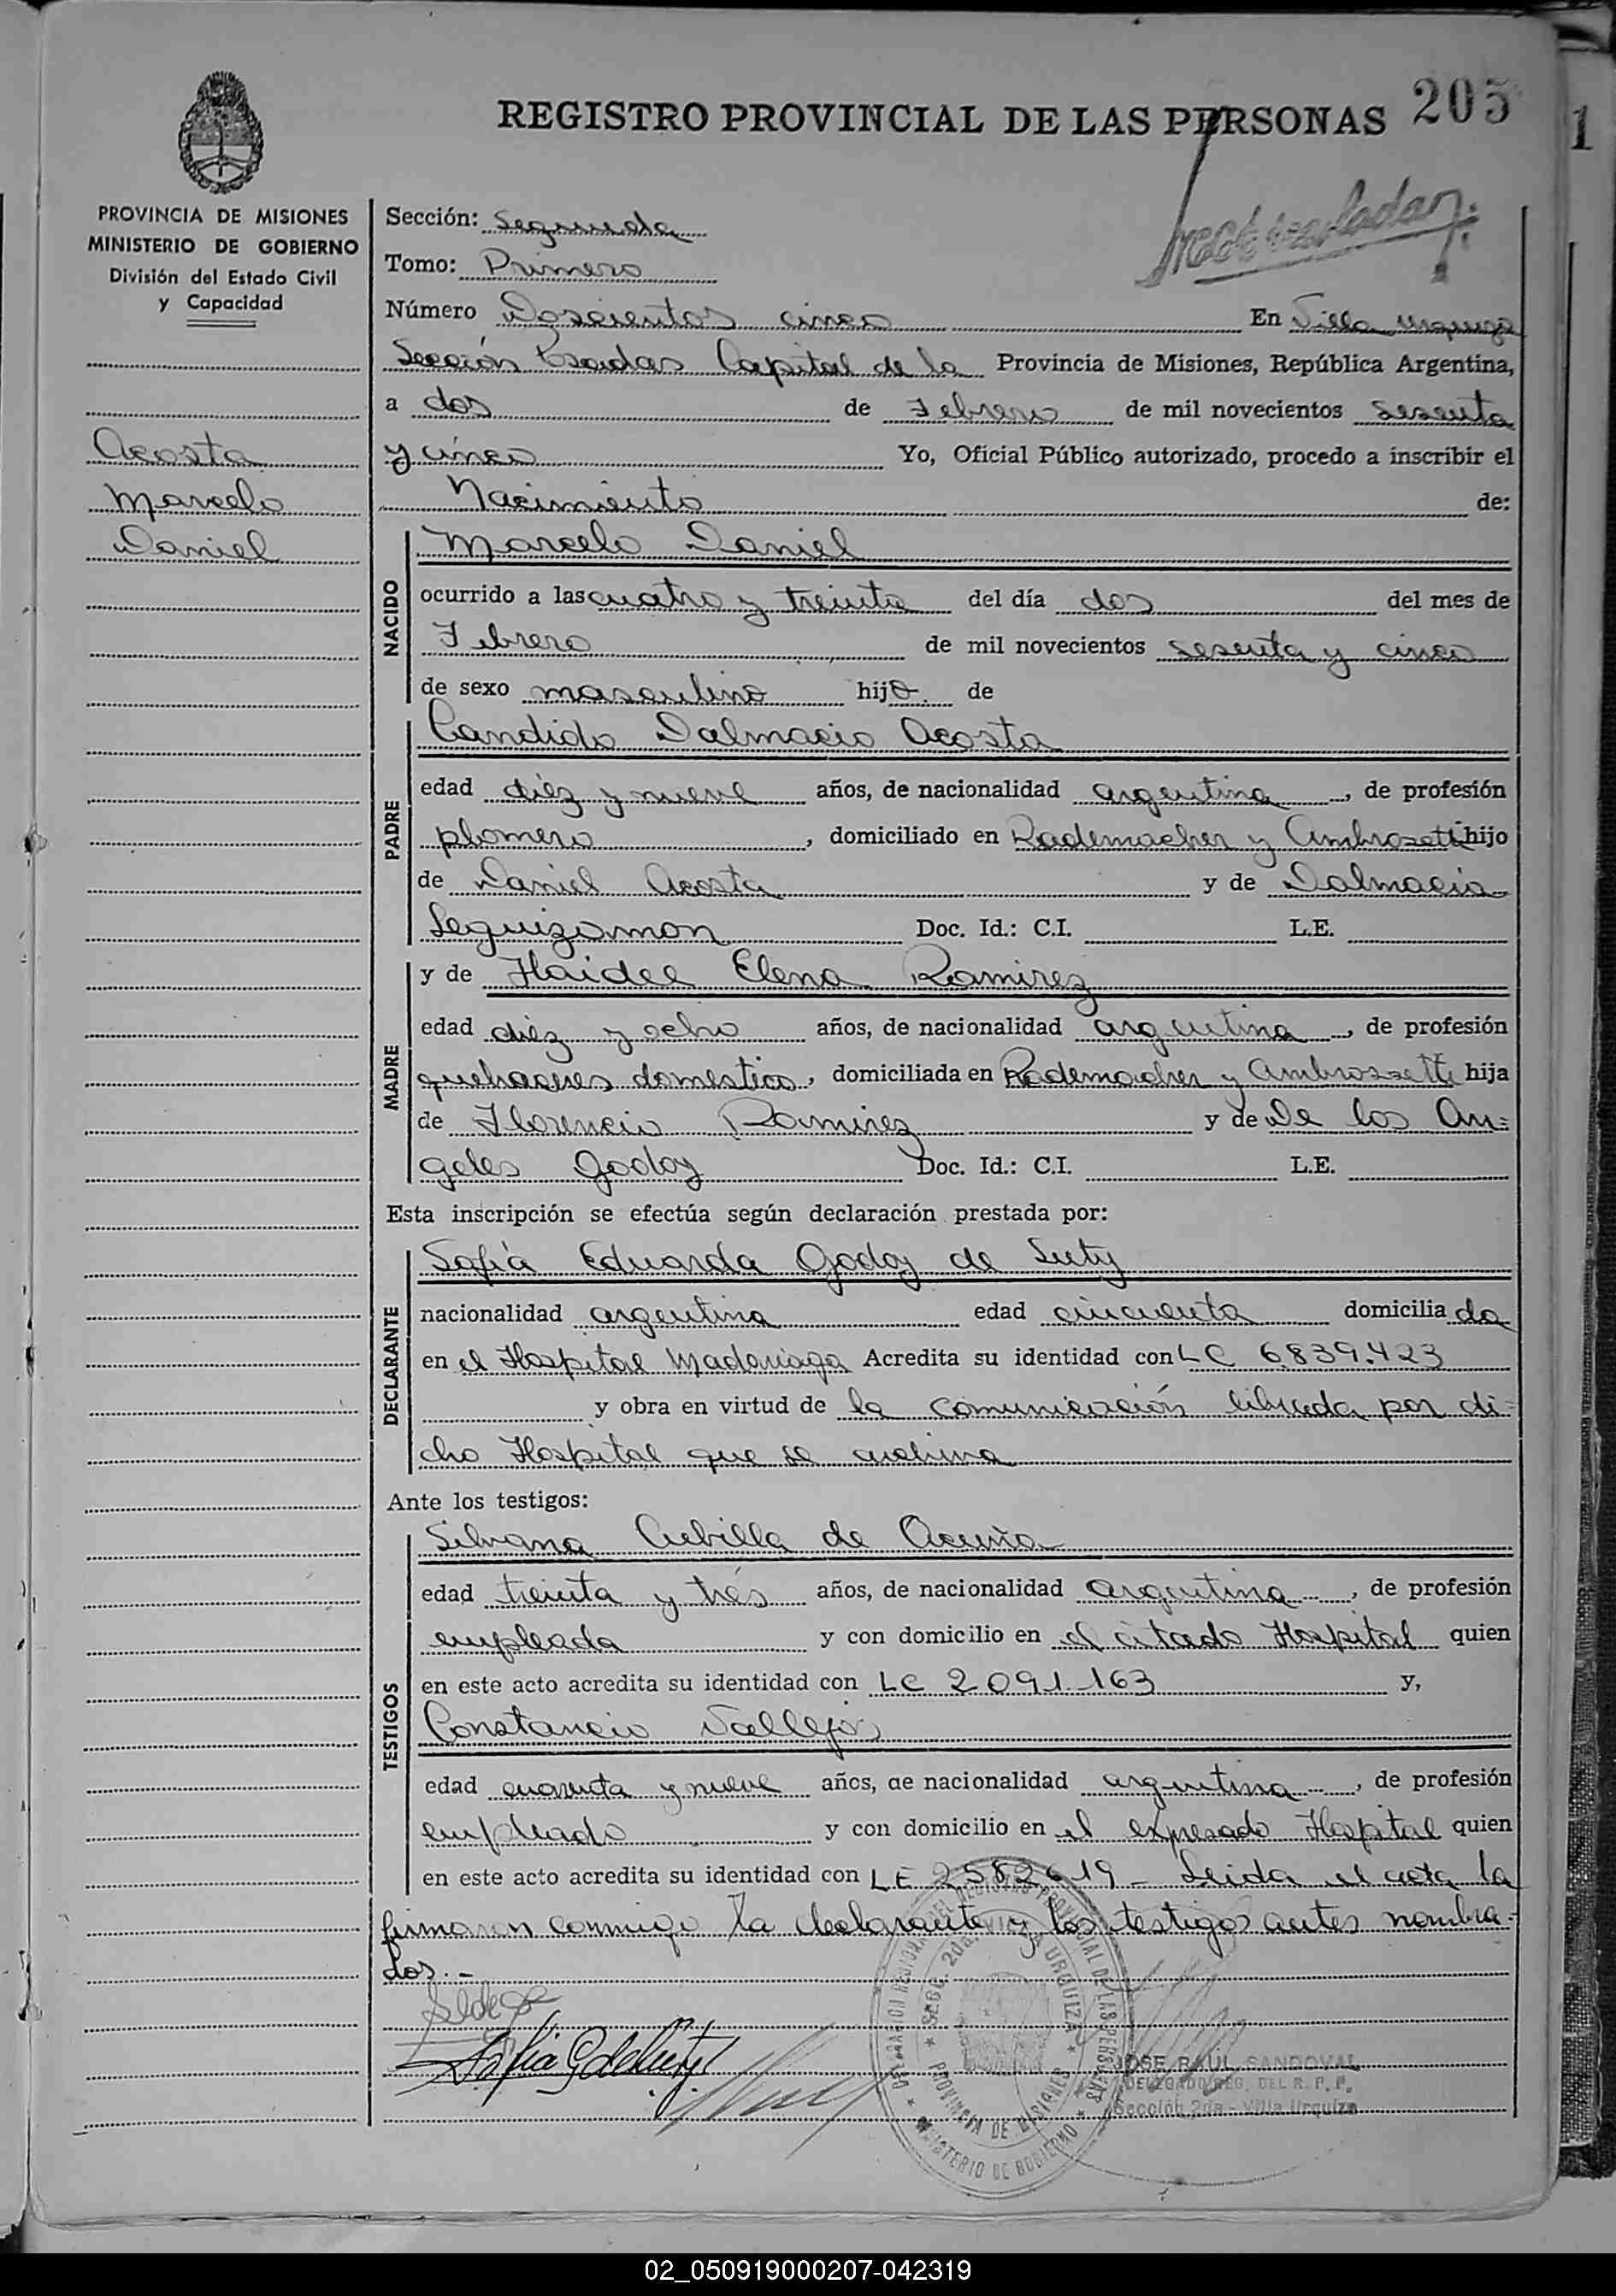 REGISTRO PROVINCIAL DE LAS PERSONAS 205
1
PROVINCIA DE MISIONES
MINISTERIO DE GOBIERNO
División del Estado Civil
y Capacidad
Acosta
Marcelo
Daniel
Sección: Segunda
Tomo: Primero
Número Doscientos cinco En Villa Urquiza
Sección Posadas Capital de la Provincia de Misiones, República Argentina,
a dos de Febrero de mil novecientos sesenta
y cinco Yo, Oficial Público autorizado, procedo a inscribir el
Nacimiento de:
NACIDO
Marcelo Daniel
ocurrido a las cuatro y treinta del día dos del mes de
Febrero de mil novecientos sesenta y cinco
de sexo masculino hijo. de
PADRE
Candido Dalmacio Acosta
edad diéz y nueve años, de nacionalidad argentina, de profesión
plomero, domiciliado en Rademacher y Ambrozetti hijo
de Daniel Acosta y de Dalmacia
Leguizamon Doc. Id.: C.I. L.E.
MADRE
y de Haidee Elena Ramirez
edad diéz y ocho años, de nacionalidad argentina, de profesión
quehaceres domestico, domiciliada en Rademacher y Ambrossetti hija
de Florencio Ramirez y de De los An=
geles Godoy Doc. Id.: C.I. L.E.
Esta inscripción se efectúa según declaración prestada por:
DECLARANTE
Sofía Eduarda Godoy de Suty
nacionalidad argentina edad cincuenta domicilia da
en el Hospital Madariaga Acredita su identidad con LC 6.839.423
y obra en virtud de la comunicación librada por di=
cho Hospital que se archiva
Ante los testigos:
TESTIGOS
Silvana Cubilla de Acuña
edad treinta y trés años, de nacionalidad argentina, de profesión
empleada y con domicilio en el citado Hospital quien
en este acto acredita su identidad con LC 2.091.163 y,
Constancio Vallejos
edad cuarenta y nueve años, de nacionalidad argentina, de profesión
empleado y con domicilio en el expresado Hospital quien
en este acto acredita su identidad con LE 2582619 - Leida el acta la
firmaron conmigo la declarante y los testigos antes nombra=
dos.-
DELEGACION REGIONAL DEL REGISTRO PROVINCIAL DE LAS PERSONAS
SECC. 2da. VILLA URQUIZA
PROVINCIA DE MISIONES
MINISTERIO DE GOBIERNO
JOSE RAUL SANDOVAL
DELEGADO REG. DEL R. P. P.
Sección 2da - Villa Urquiza
02_050919000207-042319